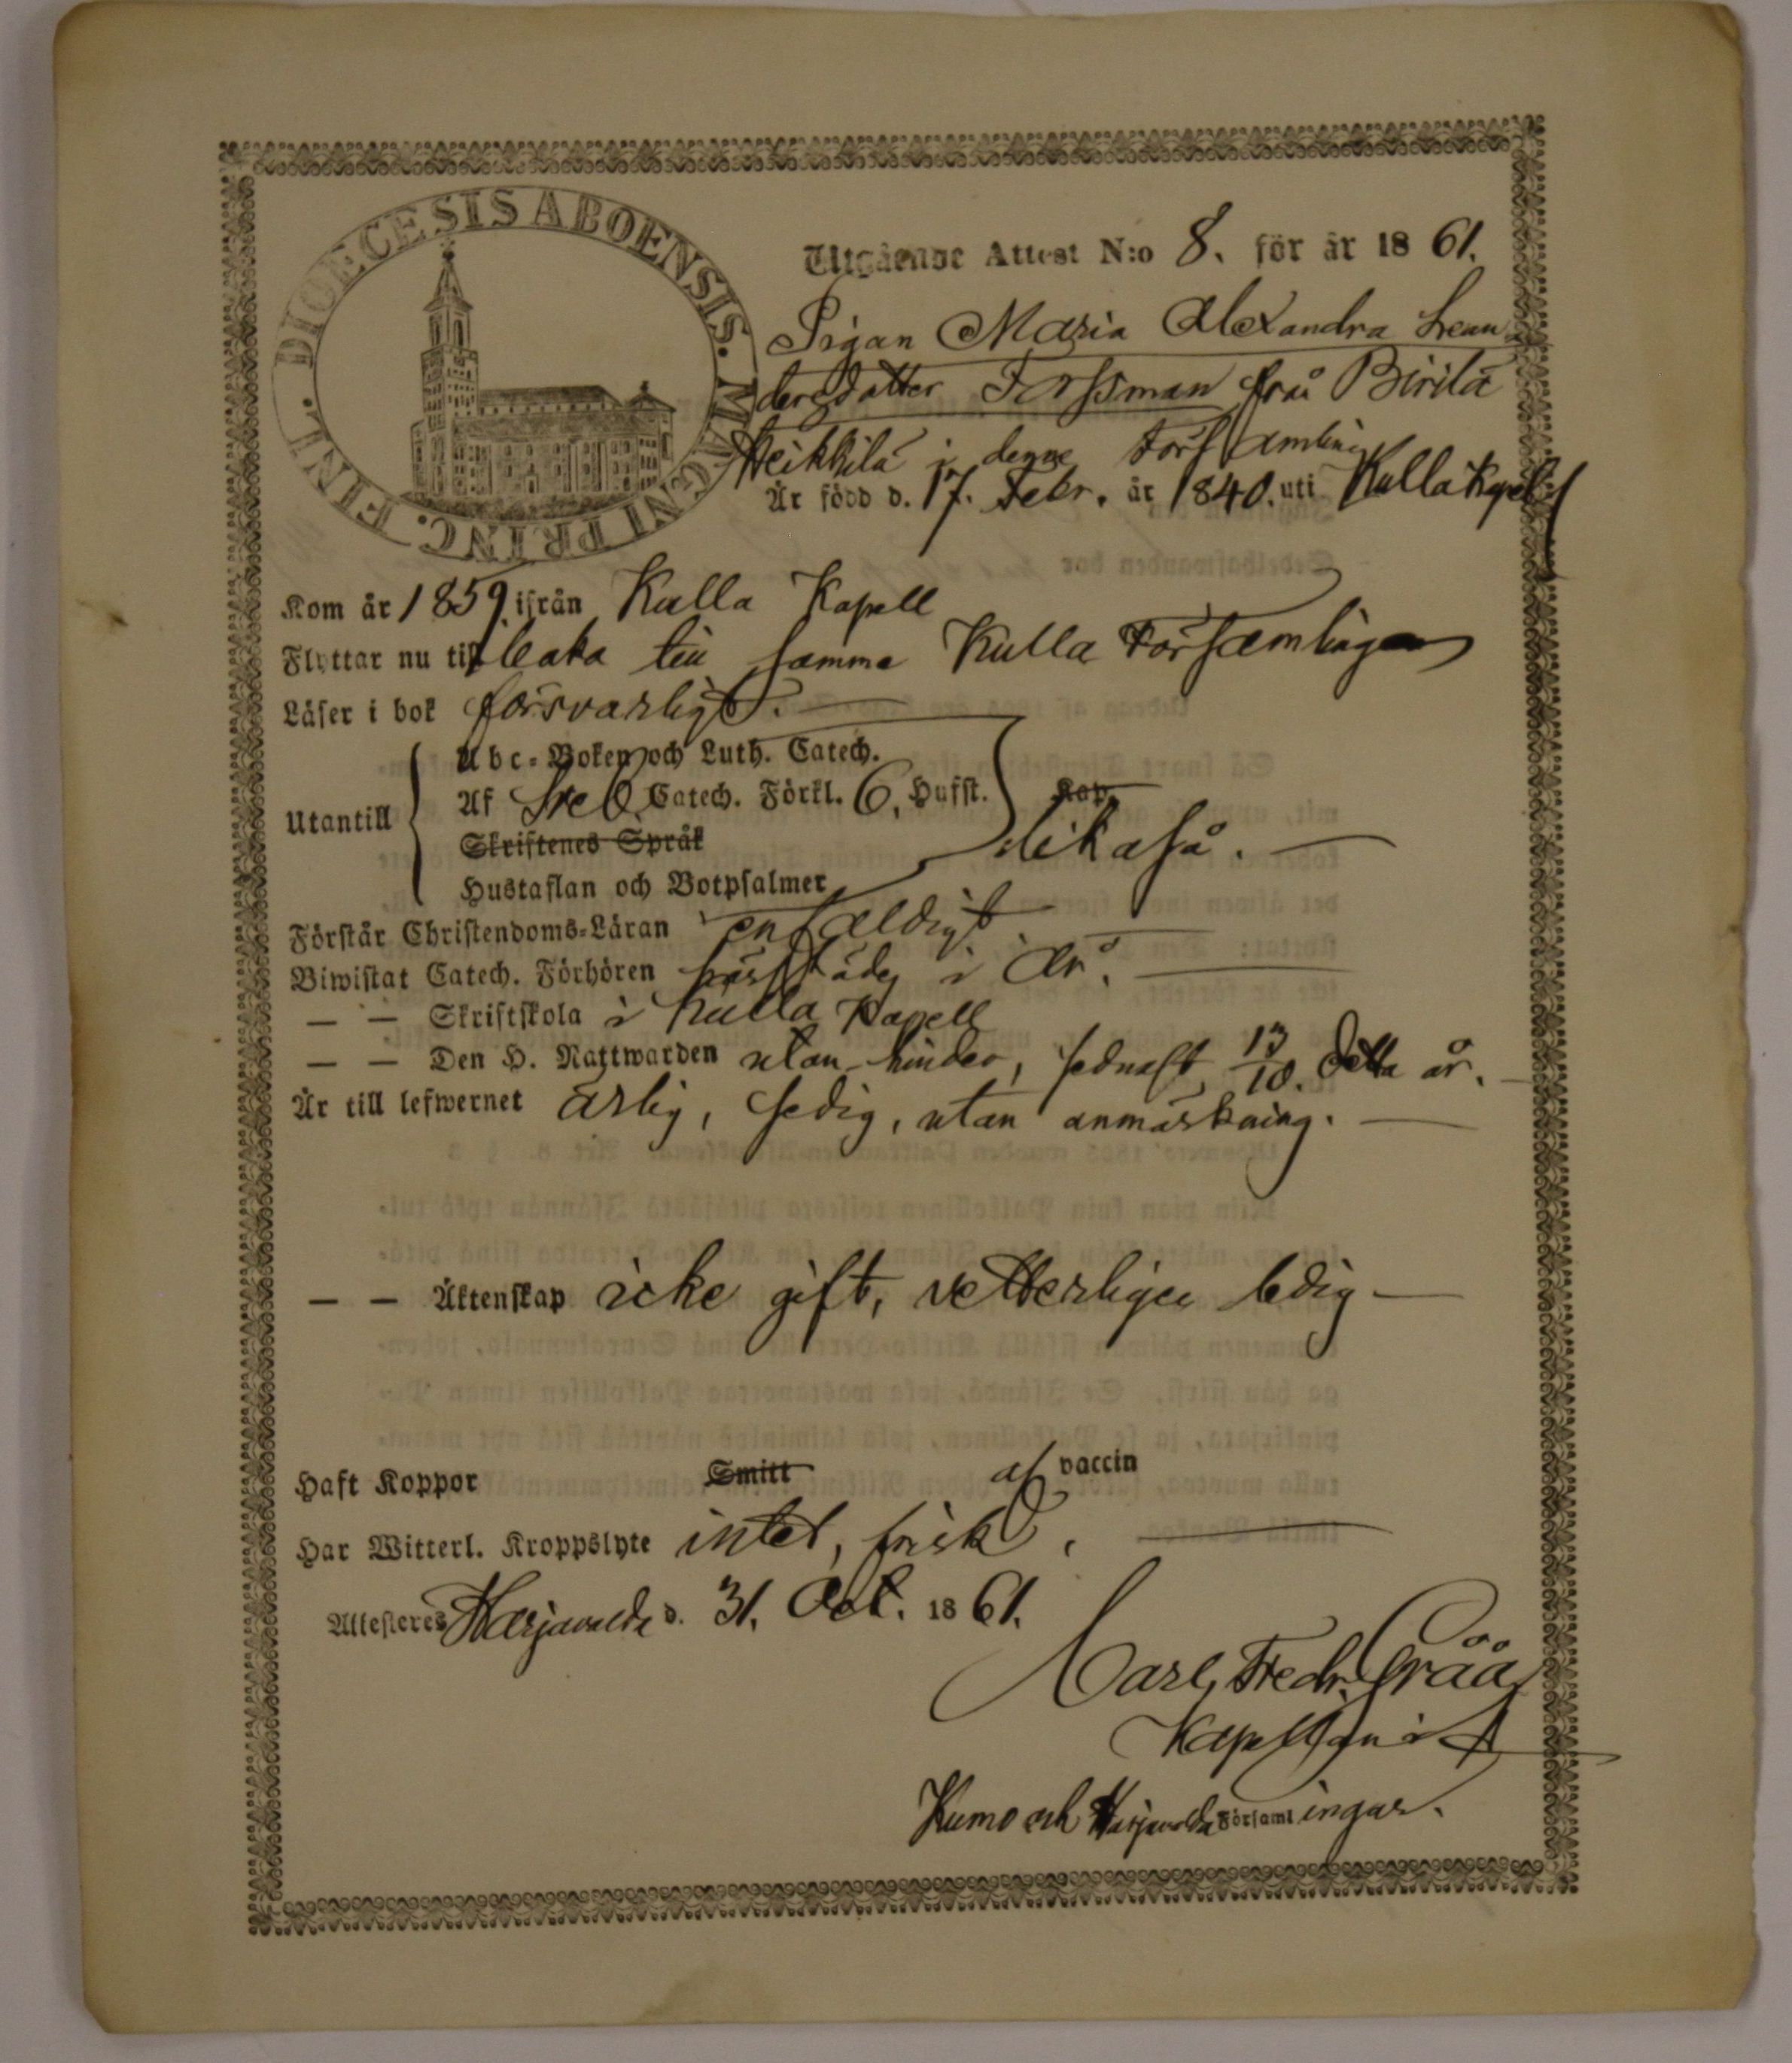 DIOECESIS ABOENSIS. MAGNI PRINC. FINL.
Utgående Attest N:o 8. för år 1861.
Pigan Maria Alexandra Lean
dersdotter Forssman från Birilä
Heikkilä i denne Församling
Är född d. 17. Febr. år 1840. uti Kulla Kapell
Kom år 1859 ifrån Kulla Kapell
Flyttar nu till baka till samma Kulla Församlingen
Läser i bok försvarligt.
Utantill
Abc-Boken och Luth. Catech.
Af Sveb. Catech. Förkl. 6. Hufst. Kap.
Skriftenes Språk
likaså.
Hustaflan och Botpsalmer
Förstår Christendoms-Läran enfaldigt
Biwistat Catech. Förhören härstädes i år.
— — Skriftskola i Kulla Kapell
— — Den H. Nattwarden utan hinder, sednast 13/10. detta år.
Är till lefwernet ärlig, sedig, utan anmärkning.
— — Äktenskap icke gift, vetterligen ledig
Haft Koppor Smitt af vaccin
Har Witterl. Kroppslyte intet, frisk.
Attesteres Harjavalda d. 31. Oct. 1861.
Carl Fredr. Gråå
Kapellan i
Kumo och Harjavalda Församlingar.